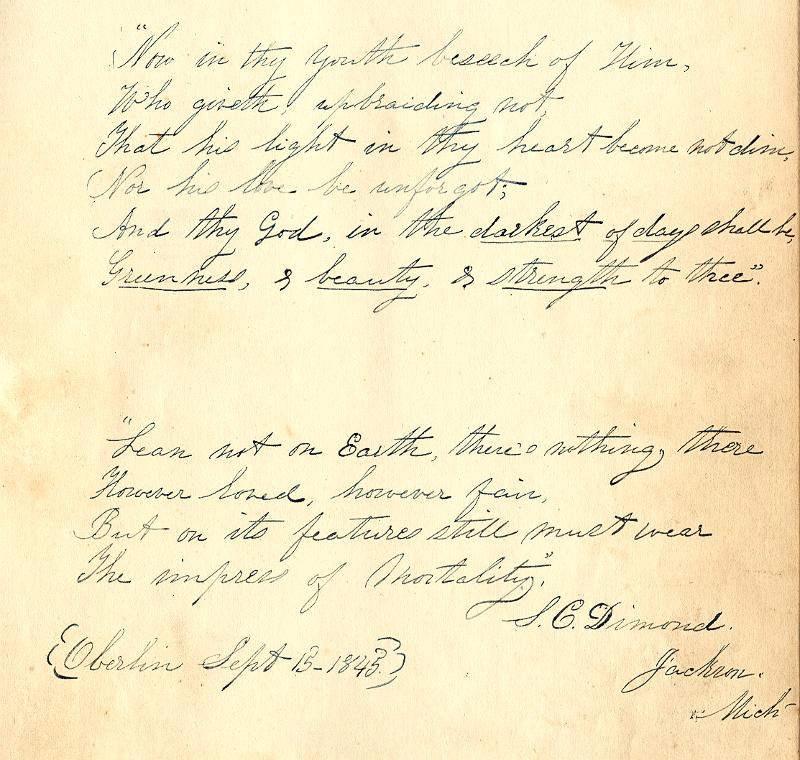 "Now in thy youth beseech of Him,
Who giveth, upbraiding not,
That his light in thy heart become not dim,
Nor his love be unforgot;
And thy God, in the darkest of days shall be,
Greenness, & beauty, & strength to thee".
"Lean not on Earth, there's nothing there
However loved, however fair,
But on its features still must wear
The impress of Mortality".
S. C. Dimond.
{Oberlin Sept 15-1845.}
Jackson.
Mich